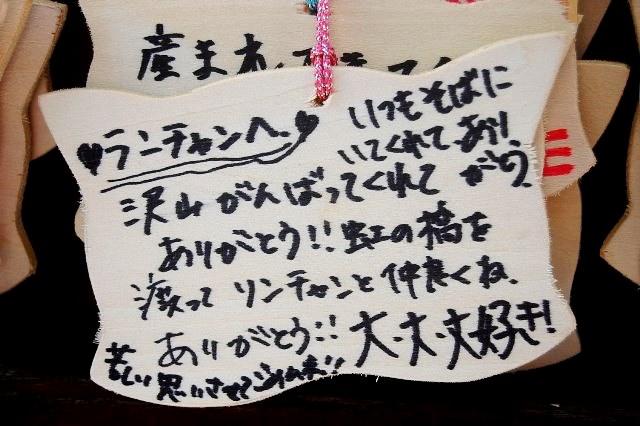 産まれ
♥ランチャンへ♥
いつもそばに
いてくれてあり
がとう。
沢山がんばってくれて
ありがとう!!虹の橋を
渡ってリンチャンと仲良くね。
ありがとう!!大・大・大好き!
苦しい思いさせて